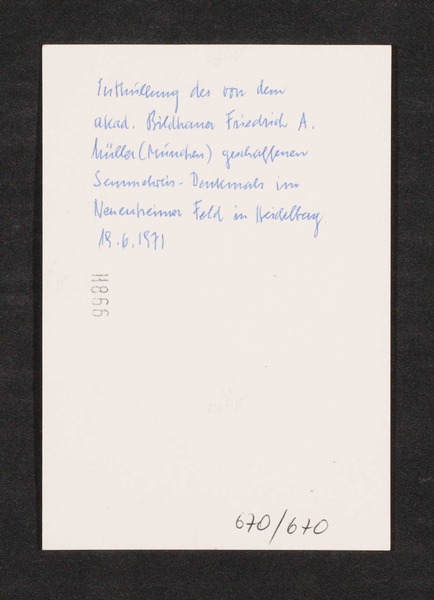 Enthüllung des von dem
akad. Bildhauer Friedrich A.
Müller (München) geschaffenen
Semmelweis-Denkmals im
Neuenheimer Feld in Heidelberg.
19.6.1971
670/670